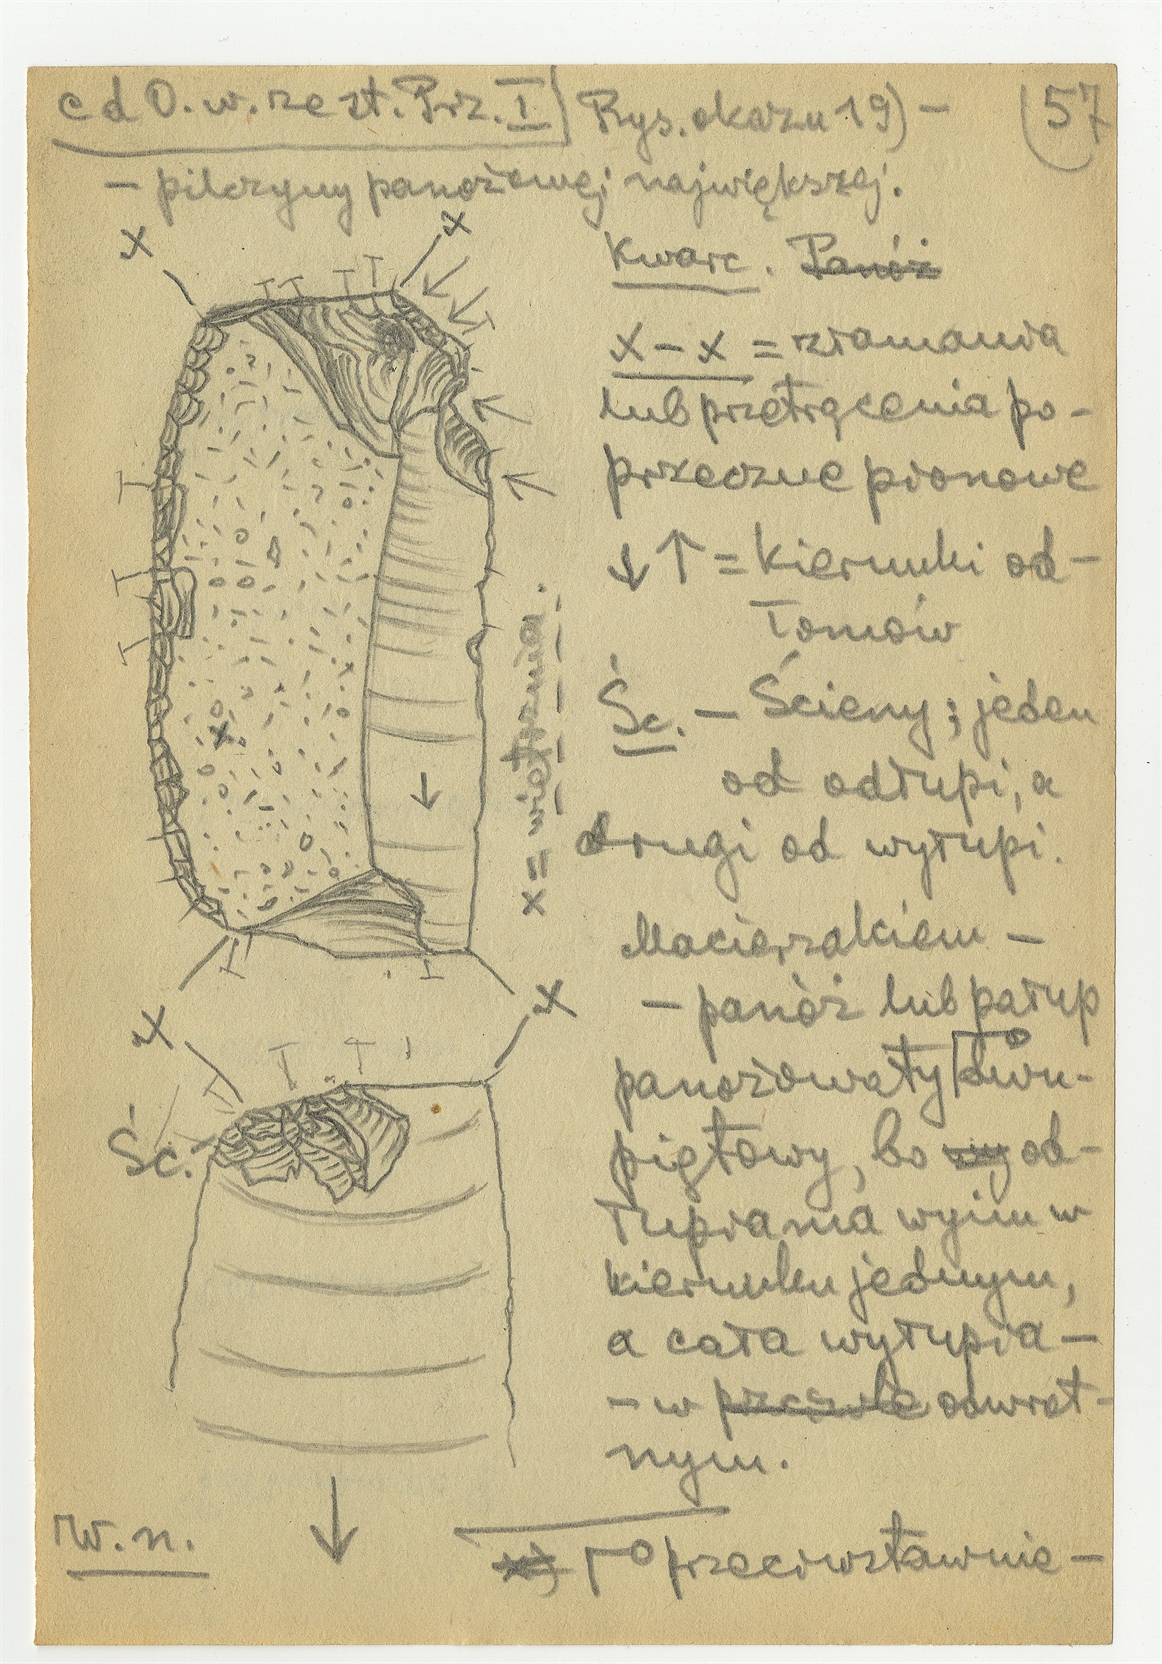 c d O. w. rze szt. Prz. I) Rys. okazu 19) – (57
– pilczyny panożowej największej.
x x
Kwarc. Panóż
x – x = złamania
lub przetrącenia po-
przeczne pionowe
↓ ↑ = kierunki od-
łomów
Śc. – Ściany; jeden
od odłupi, a
drugi od wyłupi.
x = wietrznia.
Macierzakiem –
– panóż lub patup
panożowaty ⌈o dwu-
piętowy, bo od-
łupiania wyim w
kierunku jednym,
a cała wyłupia –
– w odwrot-
nym.
x x
Śc.
W. n.
x) ⌈o przeciwstawnie –